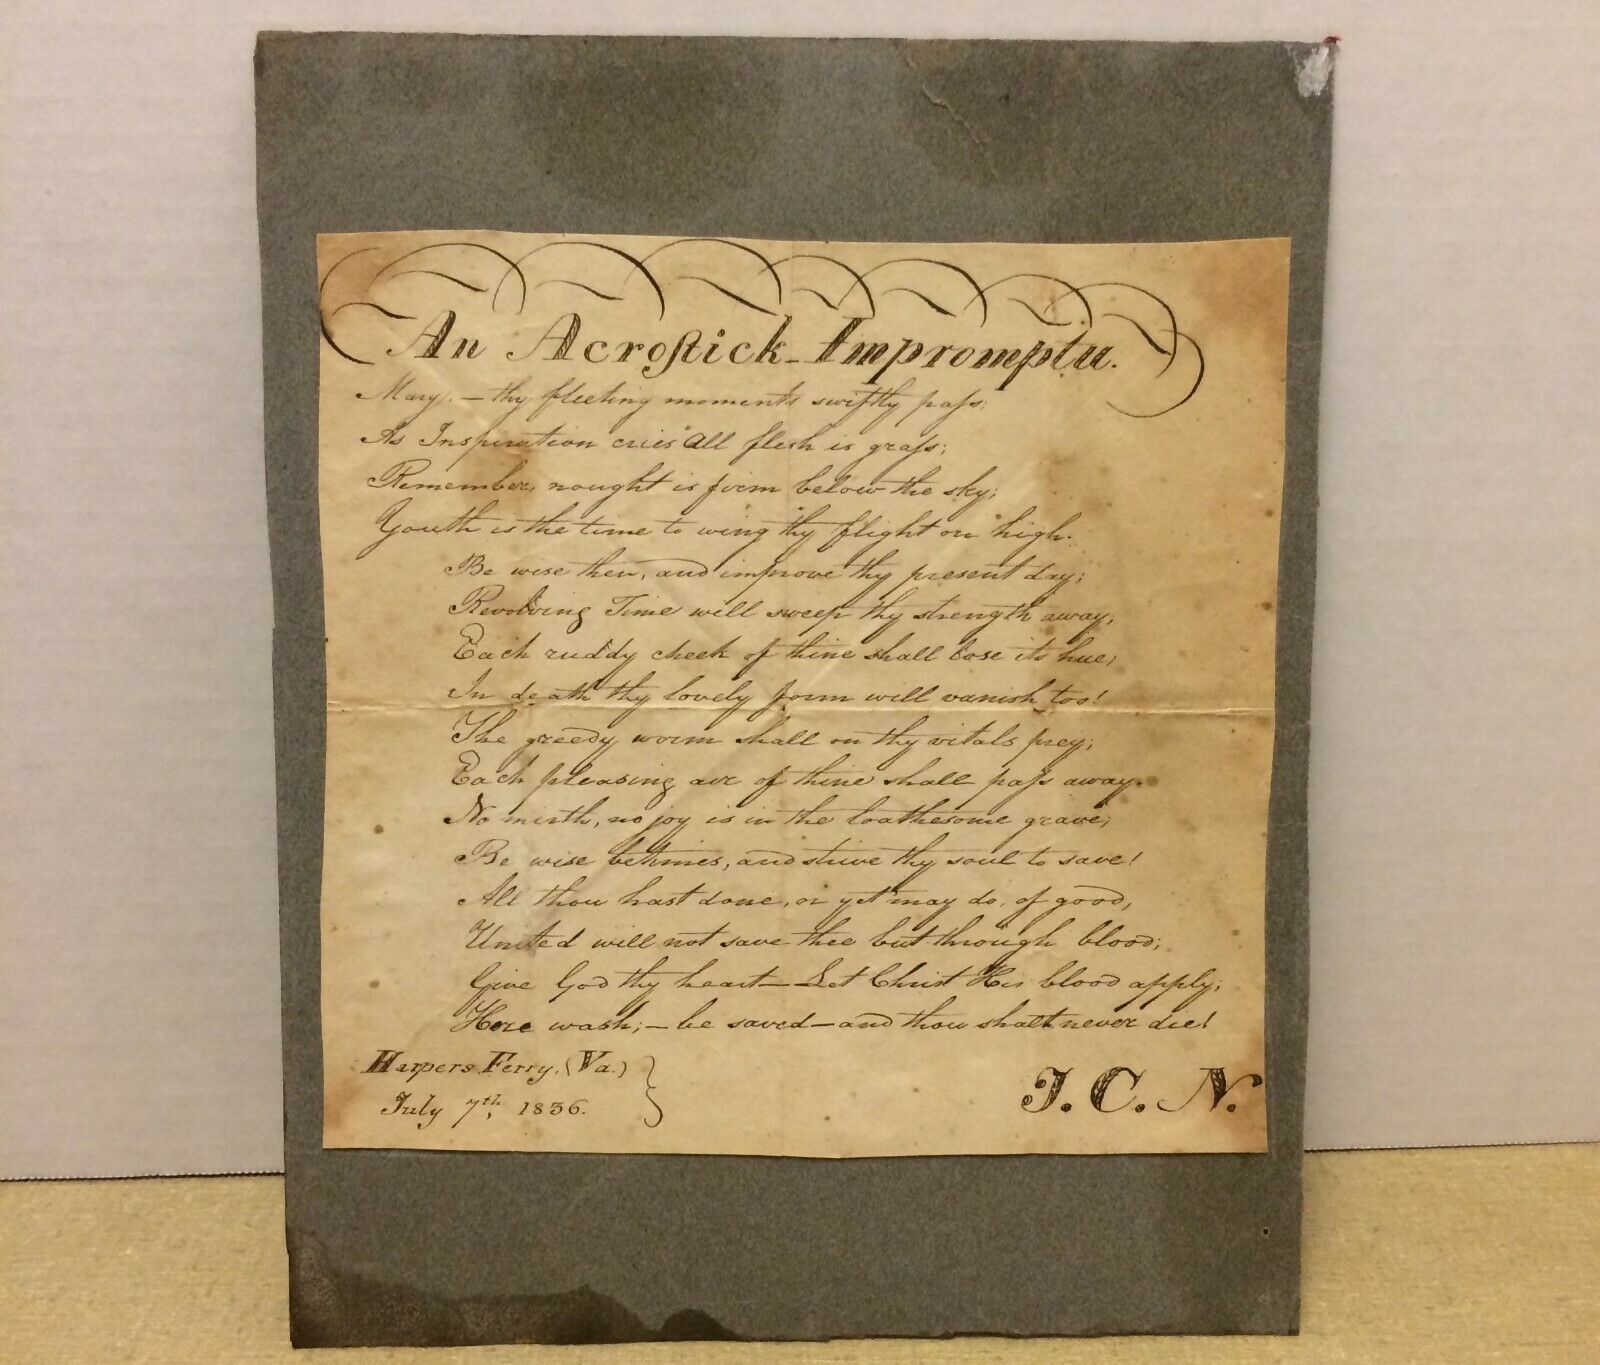 An Acroſtick-Impromptu.
Mary, — thy fleeting moments swiftly paſs;
As Inspiration cries "All flesh is graſs;
Remember, nought is firm below the sky;
Youth is the time to wing thy flight on high.
Be wise then, and improve thy present day;
Revolving Time will sweep thy strength away,
Each ruddy cheek of thine shall lose its hue;
In death thy lovely form will vanish too!
The greedy worm shall on thy vitals prey;
Each pleasing air of thine shall paſs away.
No mirth, no joy is in the loathesome grave;
Be wise betimes, and strive thy soul to save!
All thou hast done, or yet may do, of good,
United will not save thee but through blood;
Give God thy heart — Let Christ His blood apply;
Here wash; — be saved — and thou shalt never die!
Harpers Ferry, (Va.)
July 7th, 1836.
J. C. N.